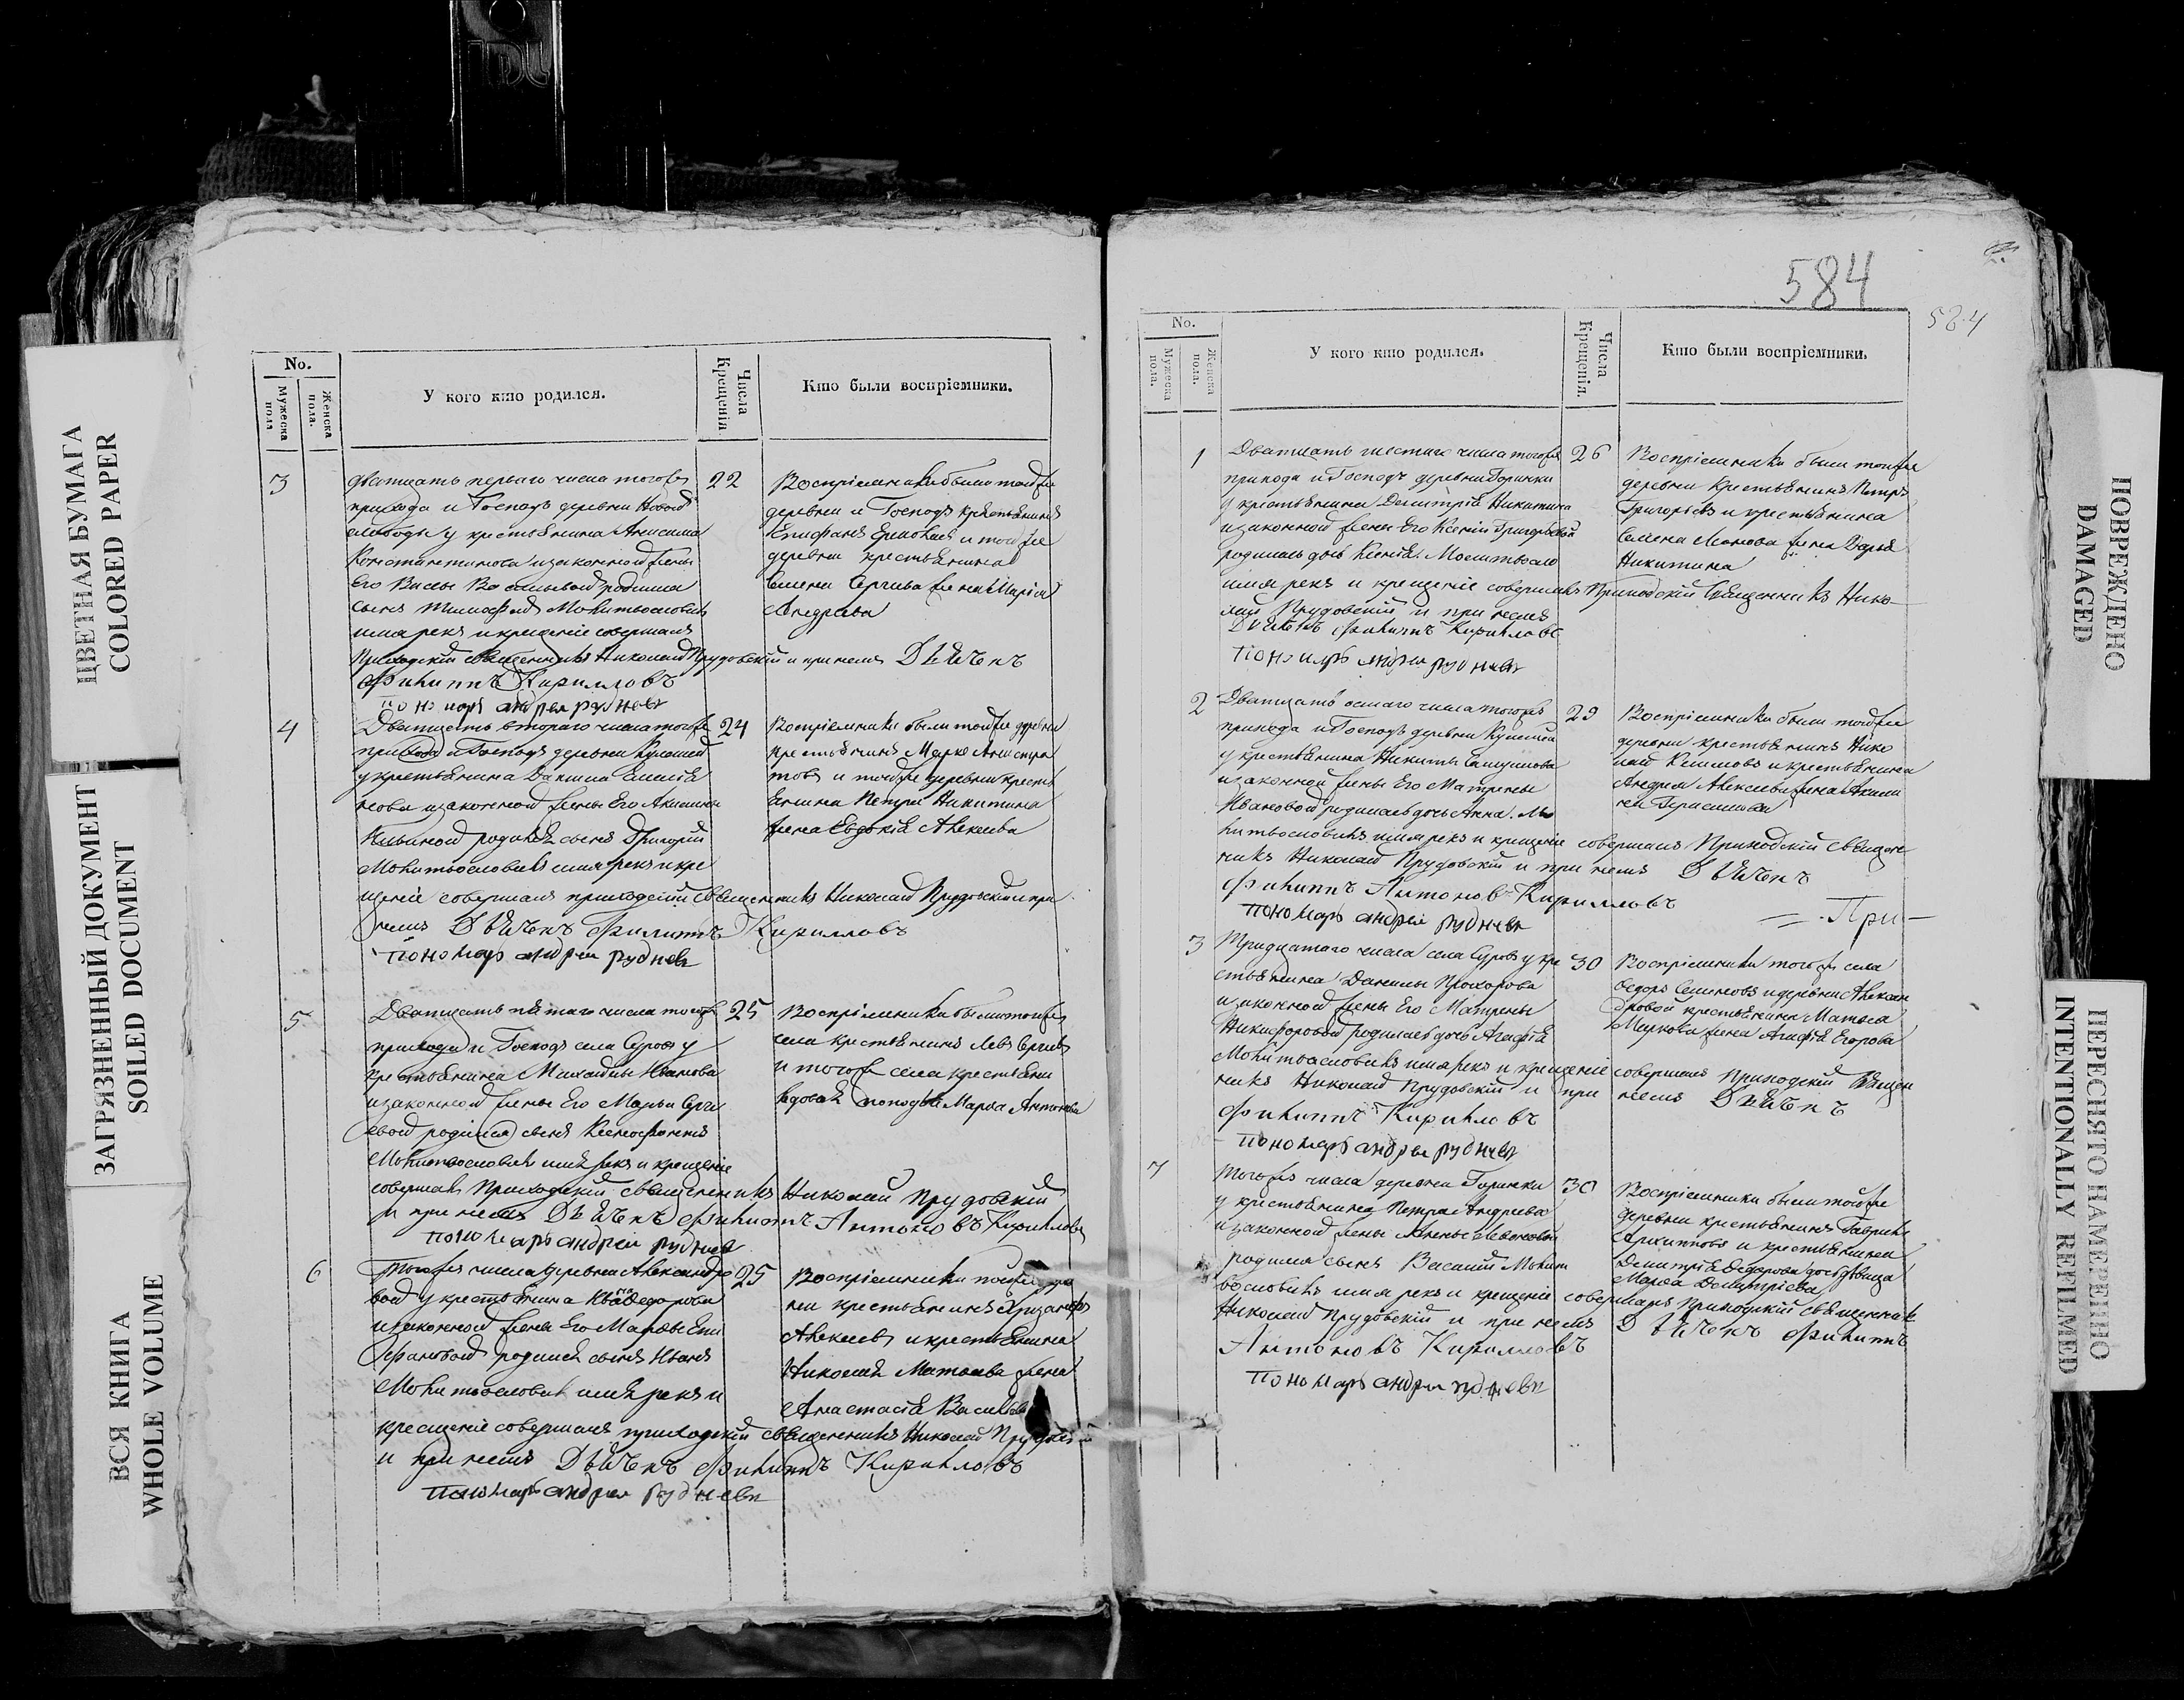 ЦВЕТНАЯ БУМАГА
COLORED PAPER
ЗАГРЯЗНЕННЫЙ ДОКУМЕНТ
SOILED DOCUMENT
ВСЯ КНИГА
WHOLE VOLUME
No.
Мужеска пола
Женска пола.
У кого кто родился.
Числа Крещенія.
Кто были воспріемники.
3
дватцать перваго числа тогожъ
прихода и Господъ деревни Новой
слободы у крестьянина Анисима
Константинова и законной жены
Его Васильевой родился
сынъ Тимофей Молитвословилъ
имя рекъ и крещеніе совершалъ
Приходскій священникъ Николай Прудовскій и при немъ Дьячекъ
Филиппъ Кирилловъ
пономарь андреи рудневъ
22
Воспріемники были тойже
деревни и Господъ крестьянинъ
Епифанъ и тойже
деревни крестьянина
Семена Сергиева жена Марія
Андреева
4
Дватцать втораго числа тогожъ
прихода и Господъ деревни
у крестьянина
и законной жены Его Акилины
родился сынъ Григорій
Молитвословилъ имя рекъ и кре
щеніе совершалъ приходскій священникъ Николай Прудовскій и при
немъ Дьячекъ Филиппъ Кирилловъ
пономарь андреи рудневъ
24
Воспріемники были тойже деревни
крестьянинъ Марко
и тойже деревни кресть
янина Петра Никитина
жена Евдокія Алексеева
5
Дватцать пятаго числа тогожъ
прихода и Господъ села Сурова у
крестьянина Михайлы Иванова
и законной жены Его Марьи Серги
евой родился сынъ Ксенофонтъ
Молитвословилъ имя рекъ и крещеніе
совершалъ Приходскій священникъ Николай Прудовскій
и при немъ Дьячекъ Филиппъ Антоновъ Кириловъ
пономарь андреи рудневъ
25
Воспріемники были тогожъ
села крестьянинъ Левъ Сергиевъ
и тогожъ села крестьяни
Марфа Антонова
6
Тогожъ числа деревни Александро
вой у крестьянина Федорова
и законной жены Его Марфы Епи
фановой родился сынъ Иванъ
Молитвословилъ имя рекъ и
крещеніе совершалъ приходскій священникъ Николай Прудовскій
и при немъ Дьячекъ Филиппъ Кириловъ
пономарь андреи рудневъ
25
Воспріемники тойже дерев
ни крестьянинъ
Алексеевъ и крестьянина
Николая Матвеева жена
Анастасія Васильева
584
584
No.
Мужеска пола.
Женска пола.
У кого кто родился.
Числа Крещенія.
Кто были воспріемники.
1
Дватцать шестаго числа тогожъ
прихода и Господъ деревни Горинки
у крестьянина Димитрія Никитина
и законной жены Его Ксеніи Григорьевой
родилась дочь Ксенія. Молитвосло
имя рекъ и крещеніе совершалъ Приходскій Священникъ Нико-
лай Прудовскій и при немъ
Дьячекъ Филиппъ Кириловъ
пономарь андреи рудневъ
26
Воспріемники были тойже
деревни крестьянинъ Петръ
Григорьевъ и крестьянина
Семена жена Дарья
Никитина
2
Дватцать осмаго числа тогожъ
прихода и Господъ деревни
у крестьянина Никиты
и законной жены Его Матрены
Ивановой родилась дочь Анна. Мо
литвословилъ имя рекъ и крещеніе совершалъ Приходскій священ
никъ Николай Прудовскій и при немъ Дьячекъ
Филиппъ Антоновъ Кирилловъ
пономарь андреи рудневъ
29
Воспріемники были тойже
деревни крестьянинъ Нико
лай и крестьянина
Андрея Алексеева жена Акили
на Герасимова
=. При-
3
Тридцатаго числа села Сурова у кре
стьянина Данилы Прохорова
и законной жены Его Матрены
Никифоровой родилась дочь Агафія
Молитвословилъ имя рекъ и крещеніе совершалъ Приходскій Священ
никъ Николай Прудовскій и при немъ Дьячекъ
Филиппъ Кириловъ
пономарь андреи рудневъ
30
Воспріемники тогожъ села
Федоръ Семеновъ и деревни Алексан
дровой крестьянина Матвея
Маркова жена Агафія Егорова
7
Тогожъ числа деревни Горинки
у крестьянина Петра Андреева
и законной жены Анны
родился сынъ Василій Молит
вословилъ имя рекъ и крещеніе совершалъ Приходскій священникъ
Николай Прудовскій и при немъ Дьячекъ Филиппъ
Антоновъ Кирилловъ
пономарь андреи рудневъ
30
Воспріемники были тойже
деревни крестьянинъ Гаврила
Архиповъ и крестьянина
Димитрія Федорова дочь девица
Марфа Димитріева
ПОВРЕЖДЕНО
DAMAGED
ПЕРЕСНЯТО НАМЕРЕННО
INTENTIONALLY REFILMED